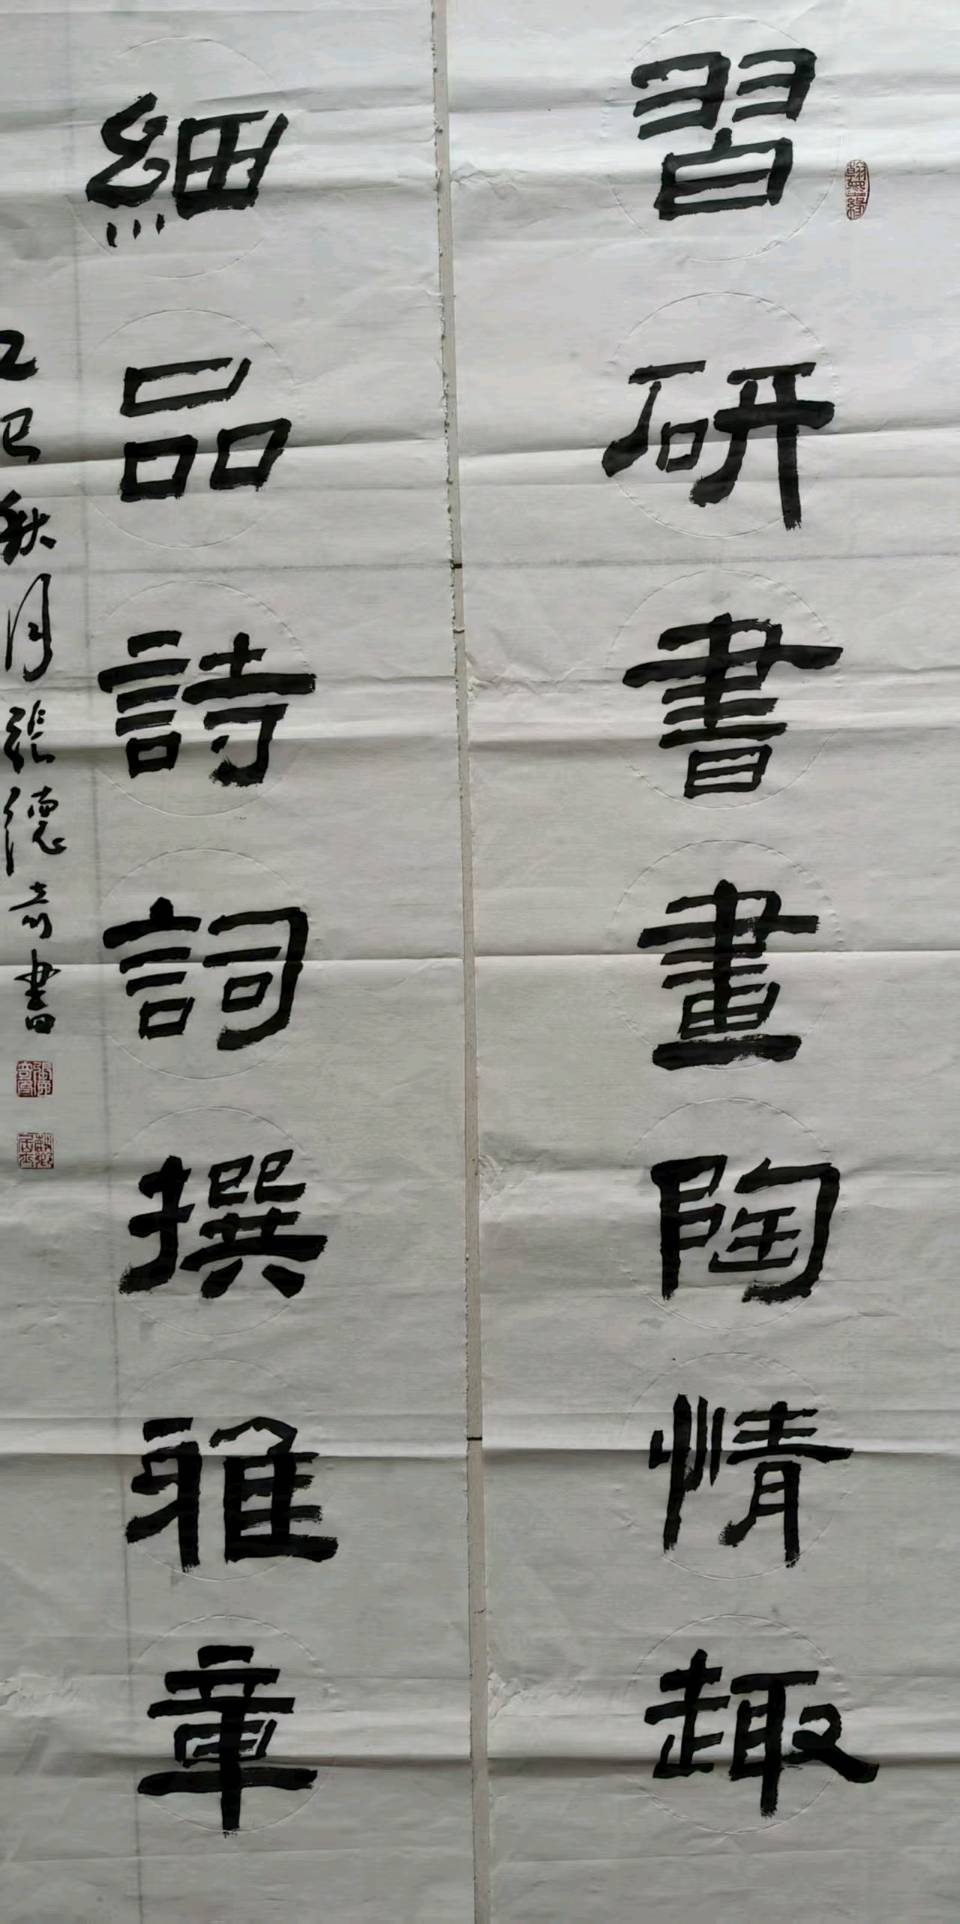 習研書畫陶情趣
細品詩詞撰雅章
乙巳秋月張德奇書